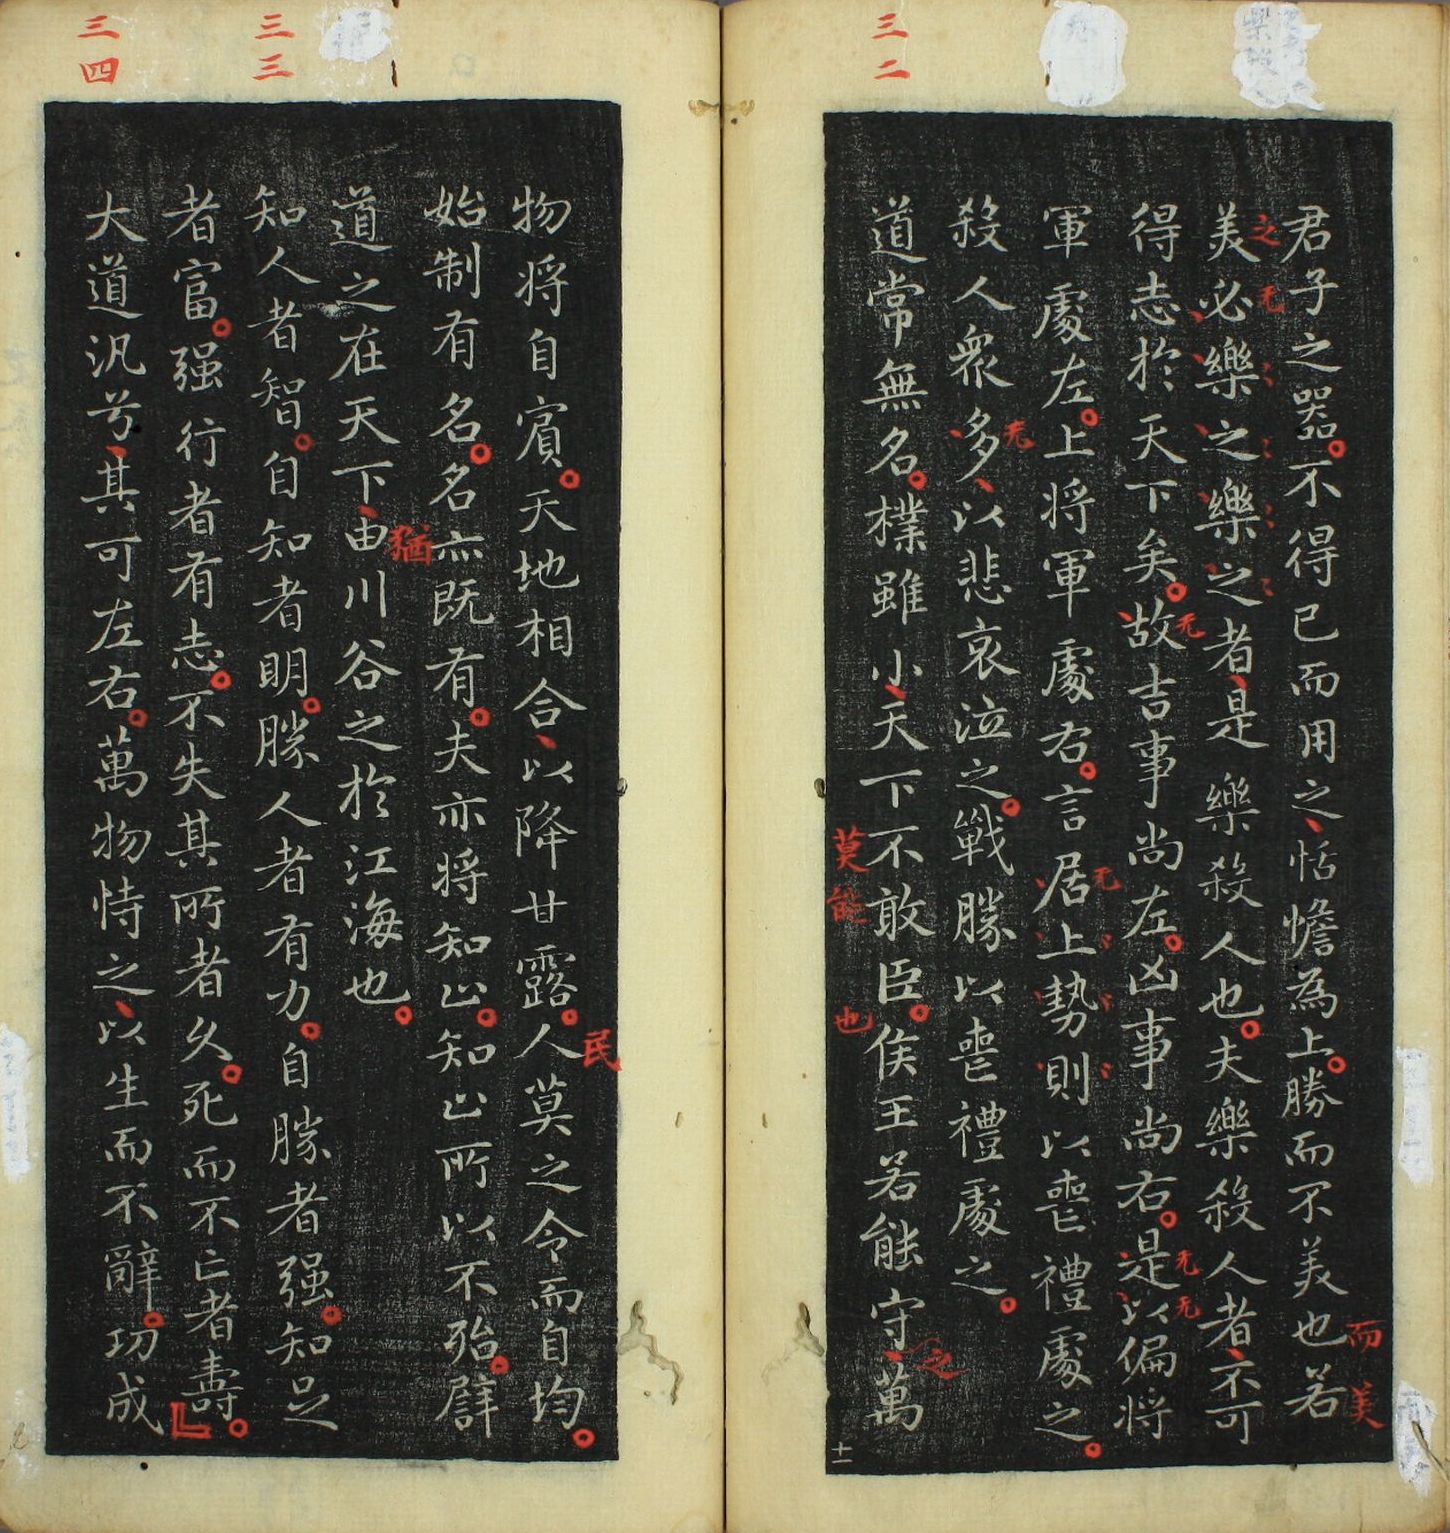 三二
君子之器。不得已而用之、恬憺為上。勝而不美也若
而美
美必樂之樂之者、是樂殺人也。夫樂殺人者、不可
之无
得志於天下矣。故吉事尚左。凶事尚右。是以偏将
无
无无
軍處左。上将軍處右。言居上勢則以喪禮處之。
无
殺人衆多、以悲哀泣之。戰勝以喪禮處之。
无
道常無名。樸雖小、天下不敢臣。侯王若能守萬
之
莫能
也
三三
三四
物将自賓。天地相合、以降甘露。人莫之令而自均。
民
始制有名。名亦既有。夫亦将知止。知止所以不殆。譬
道之在天下、由川谷之於江海也。
猶
知人者智。自知者明。勝人者有力。自勝者强。知足
者富。强行者有志。不失其所者久。死而不亡者壽。
大道汎兮、其可左右。萬物恃之、以生而不辭。功成